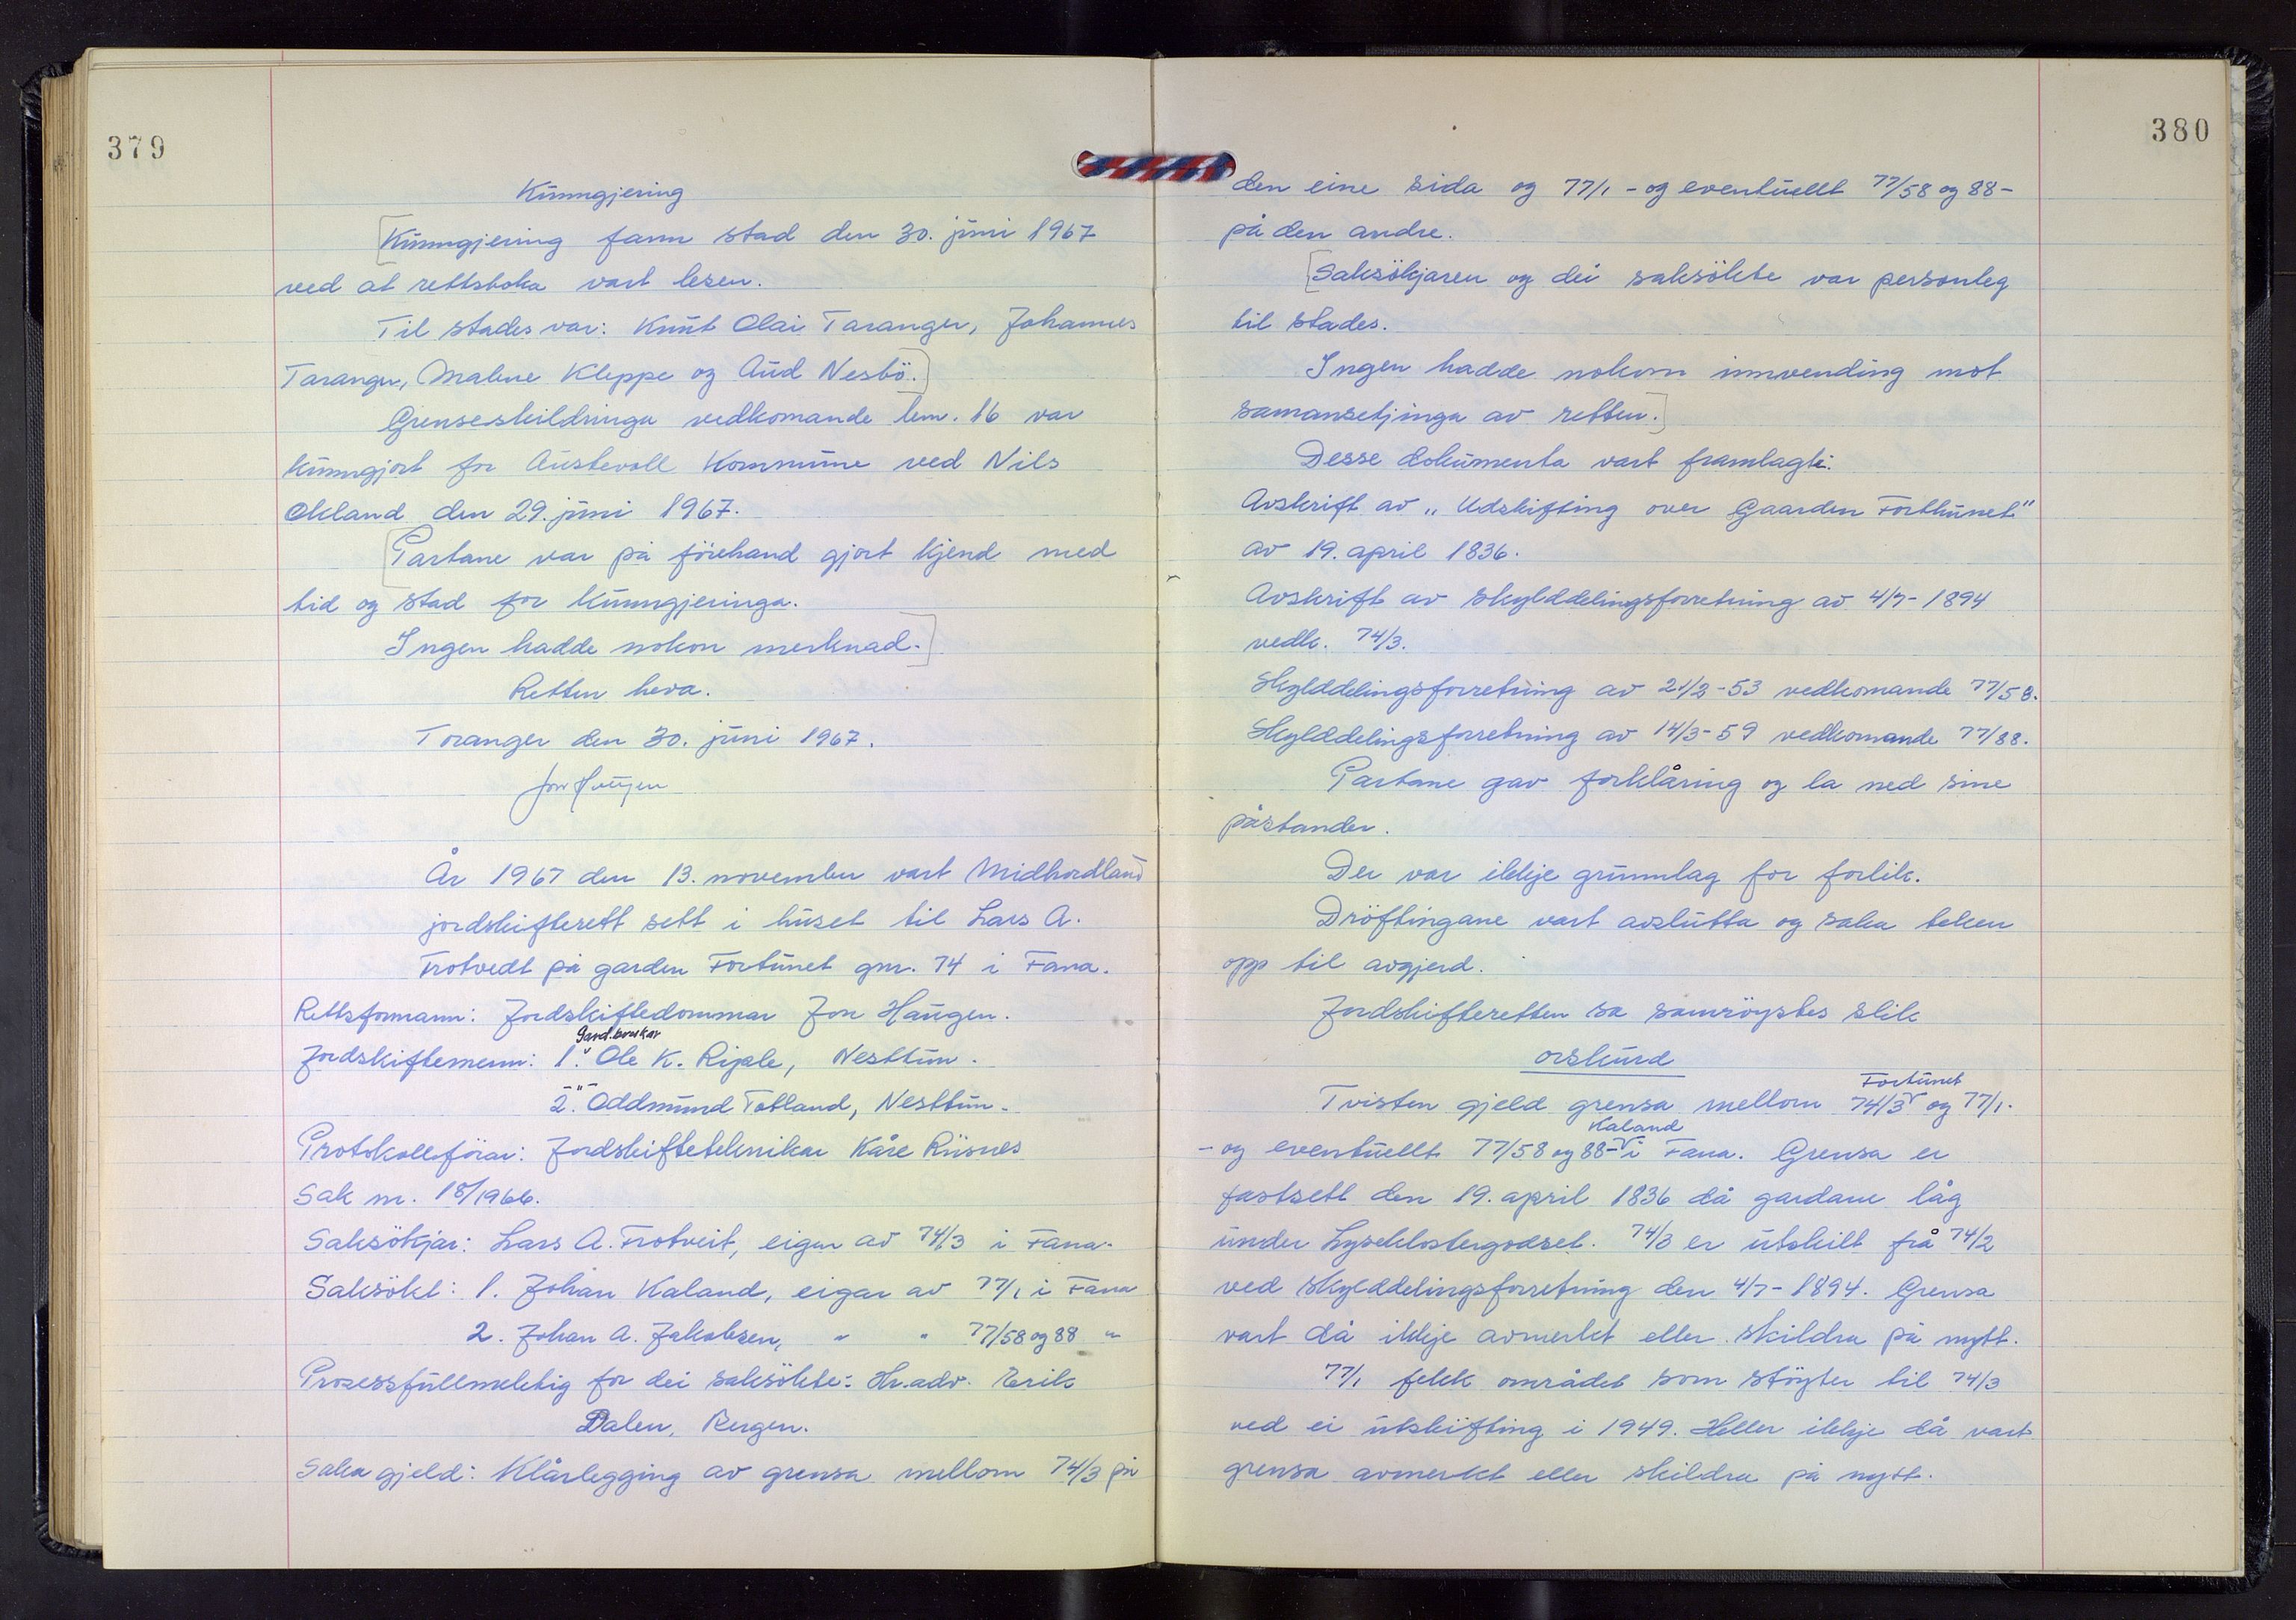 379
Kunngjering
[Kunngjering fann stad den 30. juni 1967
ved at rettsboka vart lesen.
Til stades var: Knut Olai Taranger, Johannes
Taranger, Malene Kleppe og Aud Nesbö.]
Grenseskildringa vedkomande lem. 16 var
kunngjort for Austevoll Kommune ved Nils
Okland den 29. juni 1967.
[Partane var på förehand gjort kjend med
tid og stad for kunngjeringa.
Ingen hadde nokon merknad.]
Retten heva.
Toranger den 30. juni 1967.
Jon Haugen
År 1967 den 13. november vart Midhordland
jordskifterett sett i huset til Lars A.
Frotvedt på garden Fortunet gnr. 74 i Fana.
Rettsformann: Jordskiftedommar Jon Haugen.
Gard.brukar
Jordskiftemenn: 1. Ole K. Riple, Nesttun.
-"-
2. Oddmund Totland, Nesttun.
Protokollförar: Jordskifteteknikar Kåre Riisnes
Sak nr. 18/1966.
Saksökjar: Lars A. Frotveit, eigar av 74/3 i Fana.
Saksökt: 1. Johan Kaland, eigar av 77/1 i Fana
2. Johan A. Jakobsen, " " 77/58 og 88 "
Prosessfullmektig for dei saksökte: Hr.adv. Erik
Dalen, Bergen.
Saka gjeld: Klårlegging av grensa mellom 74/3 på
380
den eine sida og 77/1 - og eventuellt 77/58 og 88 -
på den andre.
[Saksökjaren og dei saksökte var personleg
til stades.
Ingen hadde nokon innvending mot
samansetjinga av retten.]
Desse dokumenta vart framlagt:
Avskrift av „Udskifting over Gaarden Forthunet"
av 19. april 1836.
Avskrift av skylddelingsforretning av 4/7-1894
vedk. 74/3.
Skylddelingsforretning av 21/2-53 vedkomande 77/58.
Skylddelingsforretning av 14/3-59 vedkomande 77/88.
Partane gav forklåring og la ned sine
påstander.
Der var ikkje grunnlag for forlik.
Dröftingane vart avslutta og saka teken
opp til avgjerd.
Jordskifteretten sa samröystes slik
orskurd
Fortunet
Tvisten gjeld grensa mellom 74/3 og 77/1.
Kaland
- og eventuellt 77/58 og 88 - i Fana. Grensa er
fastsett den 19. april 1836 då gardane låg
under Lyseklostergodset. 74/3 er utskilt frå 74/2
ved skylddelingsforretning den 4/7-1894. Grensa
vart då ikkje avmerkt eller skildra på nytt.
77/1 fekk området som stöyter til 74/3
ved ei utskifting i 1949. Heller ikkje då vart
grensa avmerkt eller skildra på nytt.